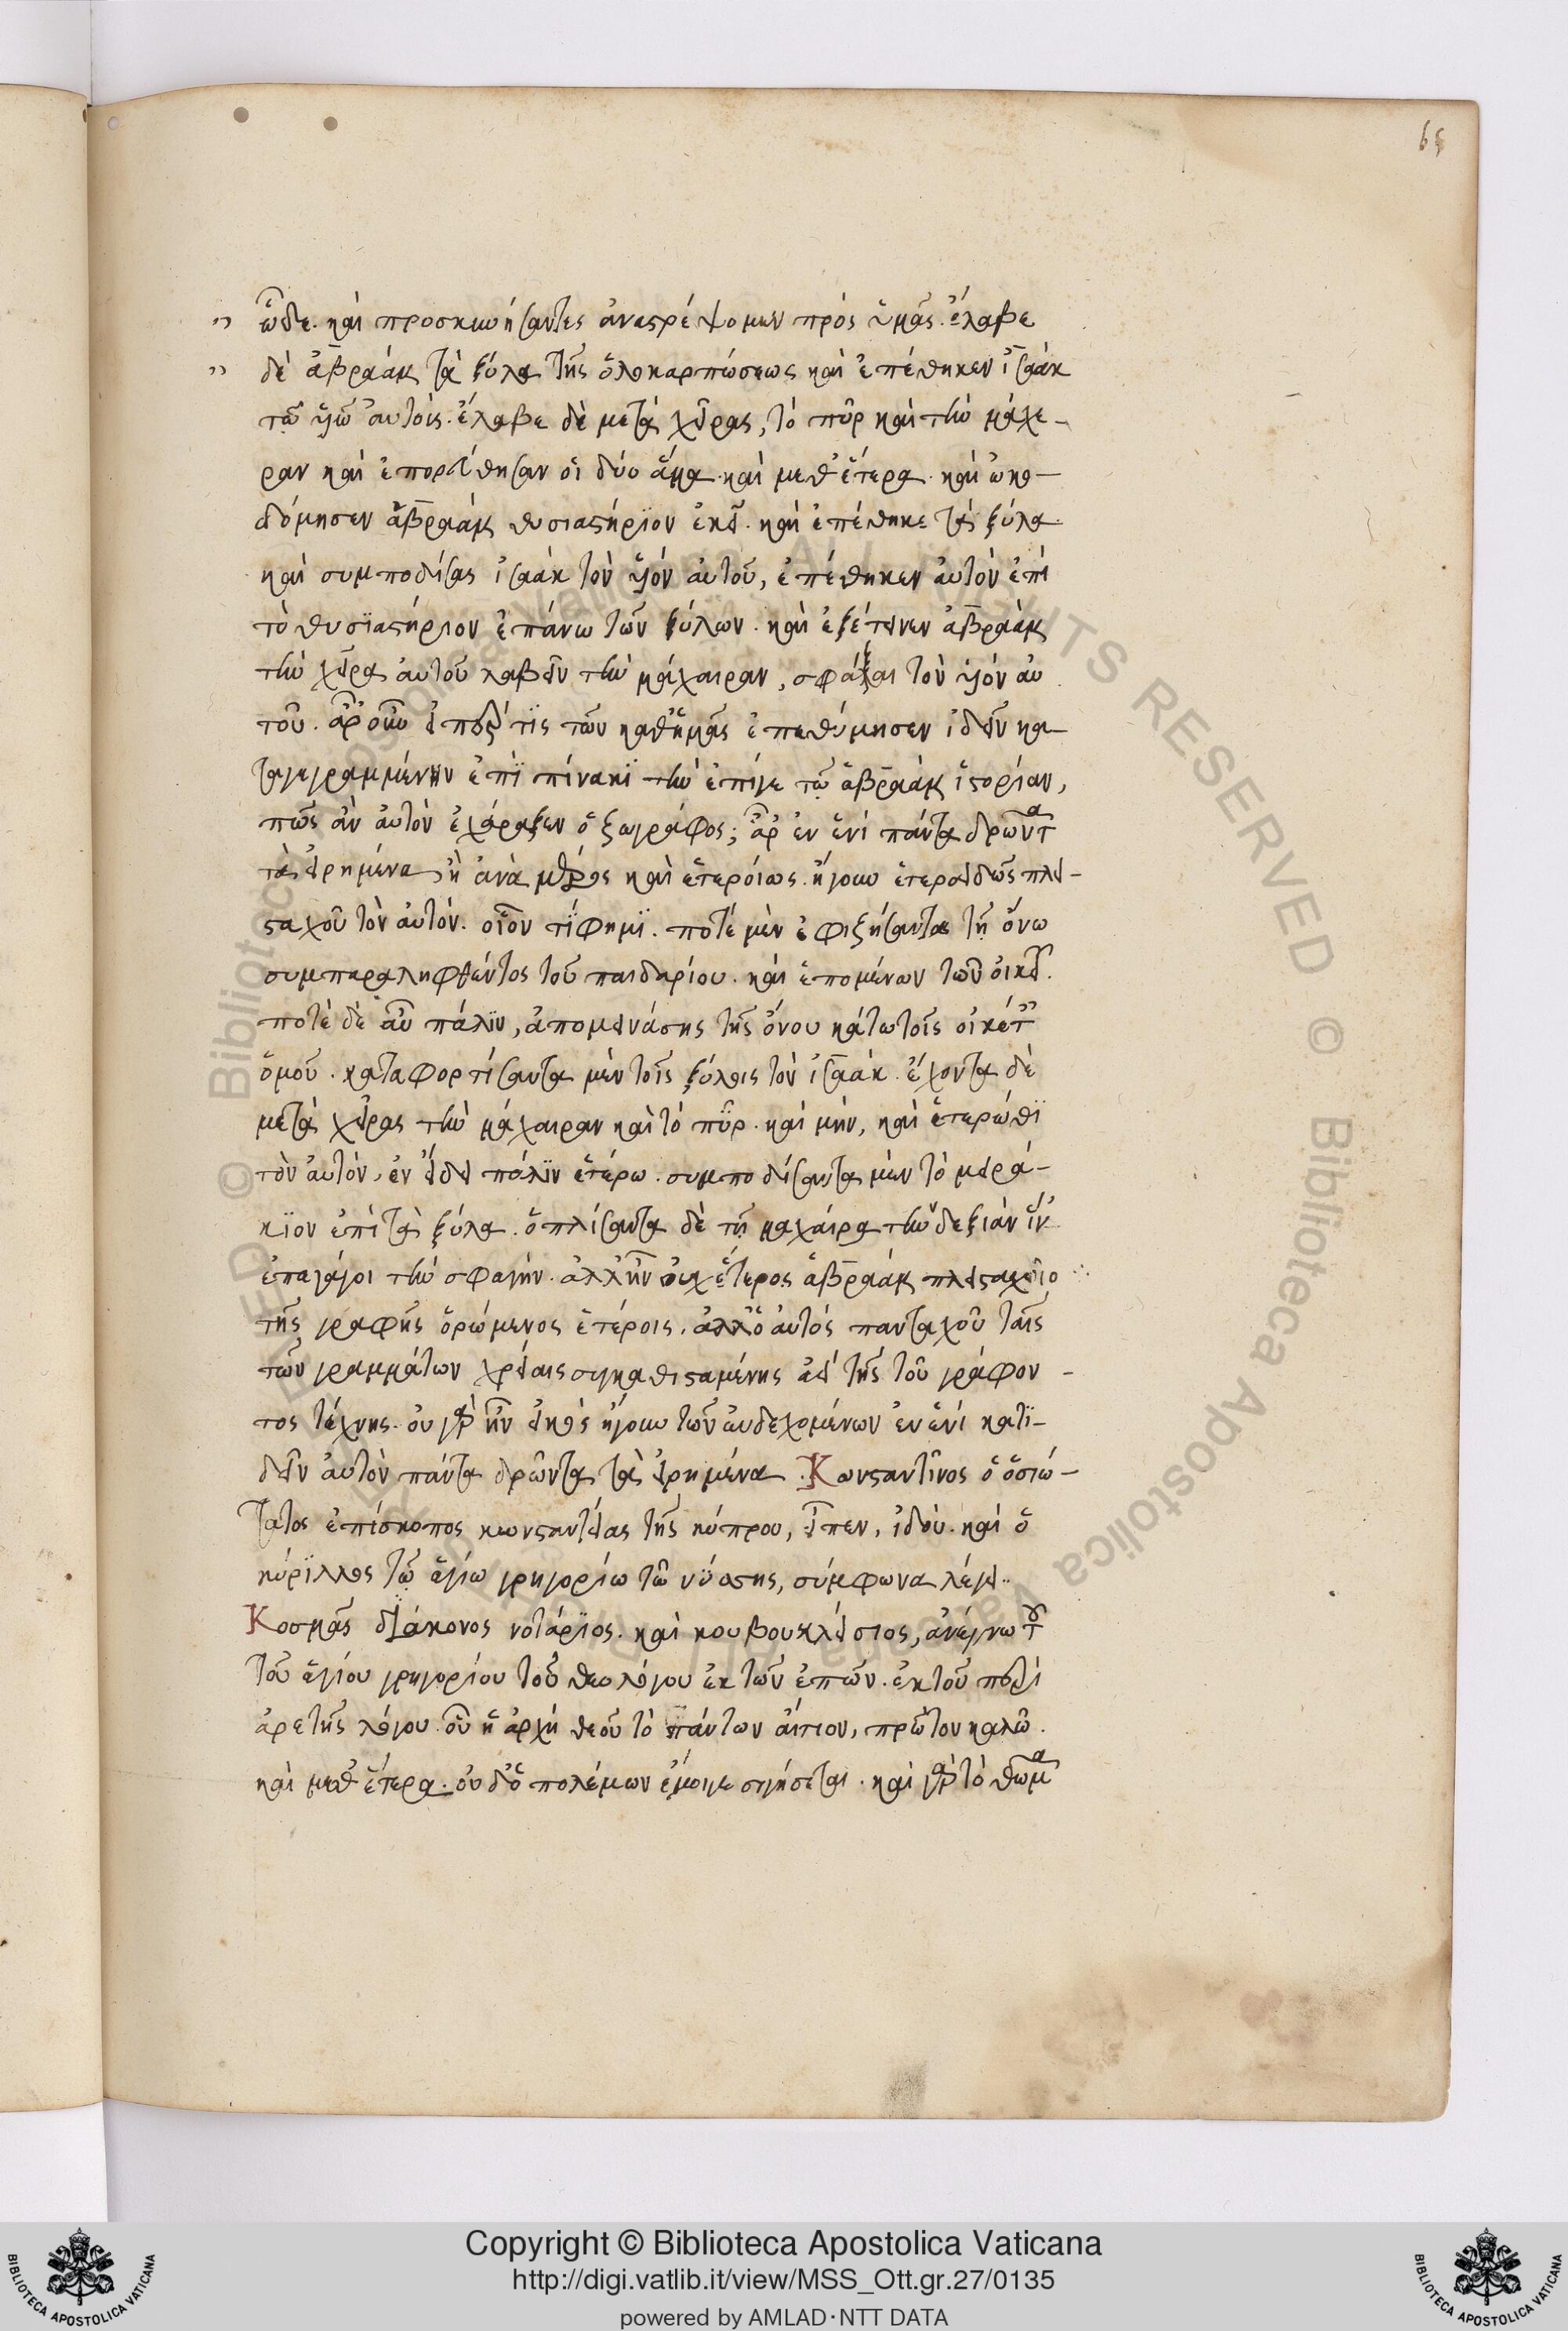 65
ὧδε. καὶ προσκυνήσαντες ἀναστρέψομεν πρὸς ὑμᾶς. ἔλαβε
δὲ ἀβραὰμ τὰ ξύλα τῆς ὁλοκαρπώσεως καὶ ἐπέθηκεν ἰσαὰκ
τῶ υἱῶ αὐτοῖς. ἔλαβε δὲ μετὰ χεῖρας, τὸ πῦρ καὶ τὴν μάχε-
ραν καὶ ἐπορεύθησαν οἱ δύο ἅμα. καὶ μεθ' ἕτερα. καὶ ὠκο-
δόμησεν ἀβραὰμ θυσιαστήριον ἐκεῖ. καὶ ἐπέθηκε τὰ ξύλα.
καὶ συμποδίσας ἰσαὰκ τὸν υἱὸν αὐτοῦ, ἐπέθηκεν αὐτὸν ἐπὶ
τὸ θυσϊαστήριον ἐπάνω τῶν ξύλων. καὶ ἐξέτεινεν ἀβραὰμ
τὴν χεῖρα αὐτοῦ λαβεῖν τὴν μάχαιραν, σφάξαι τὸν υἱὸν αὐ
τοῦ. ἆρ' οὖν εἴπερ τϊς τῶν καθ' ἡμᾶς ἐπεθύμησεν ἰδεῖν κα-
ταγεγραμμένην ἐπὶ πίνακϊ τὴν ἐπίγε τῶ ἀβραὰμ ἱστορίαν,
πῶς ἂν αὐτὸν ἐχάραξεν ὁ ζωγράφος; ἆρ' ἐν ἑνὶ πάντα δρῶντα
τὰ εἰρημένα, ἢ ἀνὰ μέρος καὶ ἑτεροίως. ἤγουν ἑτεροειδῶς πλει-
σταχοῦ τὸν αὐτόν. οἷον τί φημϊ. ποτὲ μὲν ἐφιζήσαντα τῆ ὄνω
συμπαραληφθέντος τοῦ παιδαρίου. καὶ ἑπομένων τῶν οἰκετ.
ποτὲ δὲ αὖ πάλϊν, ἀπομεινάσης τῆς ὄνου κάτω τοῖς οἰκέτ
ὁμοῦ. καταφορτίσαντα μὲν τοῖς ξύλοις τὸν ἰσαὰκ. ἔχοντα δὲ
μετὰ χεῖρας τὴν μάχαιραν καὶ τὸ πῦρ. καὶ μὴν, καὶ ἑτερώθϊ
τὸν αὐτὸν, ἐν εἴδει πάλϊν ἑτέρω. συμποδίσαντα μὲν τὸ μειρά-
κϊον ἐπὶ τὰ ξύλα. ὁπλίσαντα δὲ τῆ μαχαίρα τὴν δεξιὰν ἵν'
ἐπαγάγοι τὴν σφαγήν. ἀλλ' ἦν οὐχ ἕτερος ἀβραὰμ πλεισταχοῦ
τῆς γραφῆς ὁρώμενος ἑτέροις. ἀλλ' ὁ αὐτὸς πανταχοῦ ταῖς
τῶν γραμμάτων χρείαις συγκαθισταμένης ἀεὶ τῆς τοῦ γράφον-
τος τέχνης. οὐ γὰρ ἦν εἰκὸς ἤγουν τῶν ἐνδεχομένων ἐν ἑνὶ κατϊ-
δεῖν αὐτὸν πάντα δρῶντα τὰ εἰρημένα. Κωνσταντῖνος ὁ ὁσιώ-
τατος ἐπίσκοπος κωνσταντείας τῆς κύπρου, εἶπεν, ἰδοὺ. καὶ ὁ
κύριλλος τῶ ἁγίω γρηγορίω τῶ νύσσης, σύμφωνα λέγει.
Κοσμᾶς δϊάκονος νοτάρϊος. καὶ κουβουκλείσιος, ἀνέγνω τοῦ
τοῦ ἁγίου γρηγορίου τοῦ θεολόγου ἐκ τῶν ἐπῶν. ἐκ τοῦ περὶ
ἀρετῆς λόγου. οὗ ἡ ἀρχὴ θεοῦ τὸ πάντων αἴτιον, πρῶτον καλῶ.
καὶ μεθ' ἕτερα. οὐδ' ὁ πολέμων ἔμοιγε σιγήσεται. καὶ γὰρ τὸ θαῦμα
Copyright © Biblioteca Apostolica Vaticana
http://digi.vatlib.it/view/MSS_Ott.gr.27/0135
powered by AMLAD·NTT DATA